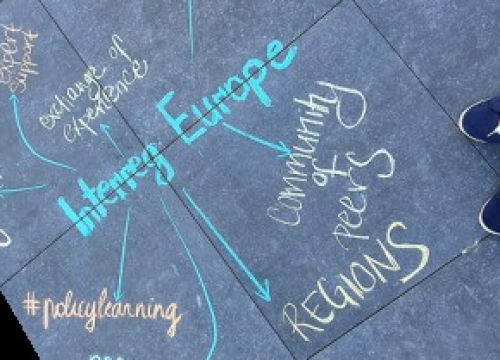 expert
support
exchange of
experience
Interreg Europe
Community
of
peers
REGIONS
#policylearning